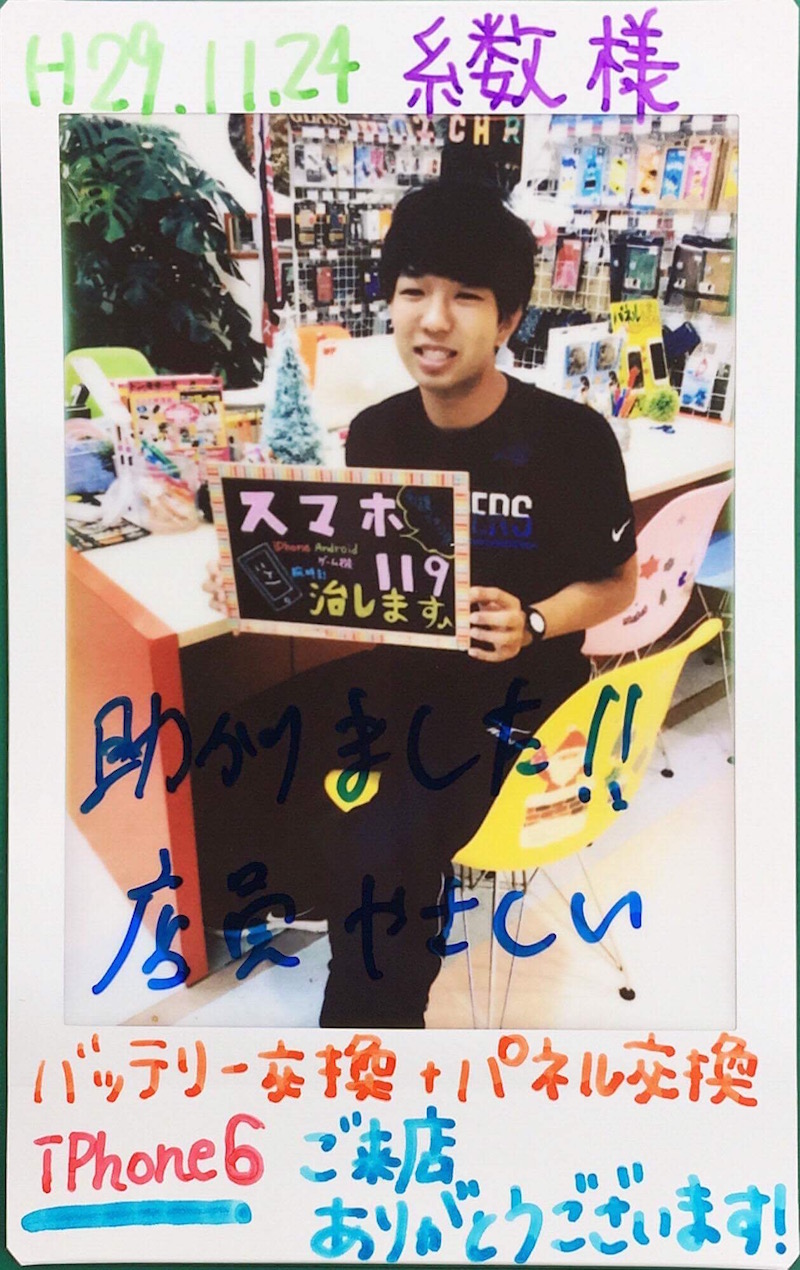 H29.11.24 糸数様
GLASS
CHR
パネル
スマホ
iPhone Android
ゲーム機
119
治します♪
ERS
助かりました!!
店員 やさしい
バッテリー交換+パネル交換
iPhone6 ご来店
ありがとうございます!